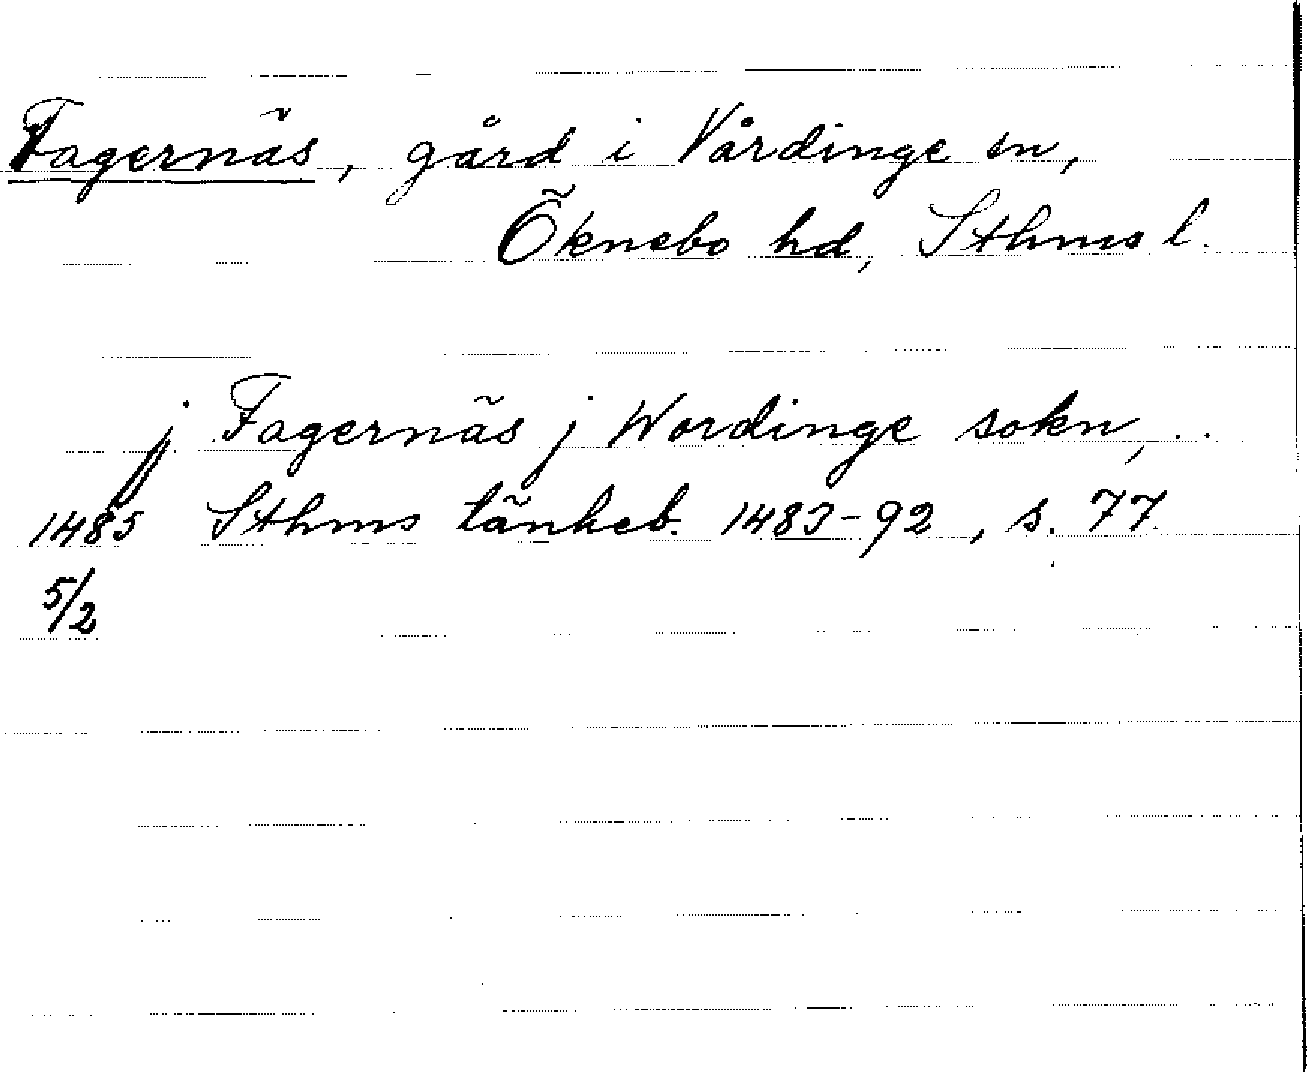 Fagernäs, gård i Vårdinge sn,
Öknebo hd, Sthms l.
j Fagernäs j Wordinge sokn, ..
1485 Sthms tänkeb. 1483-92, s. 77.
5/2